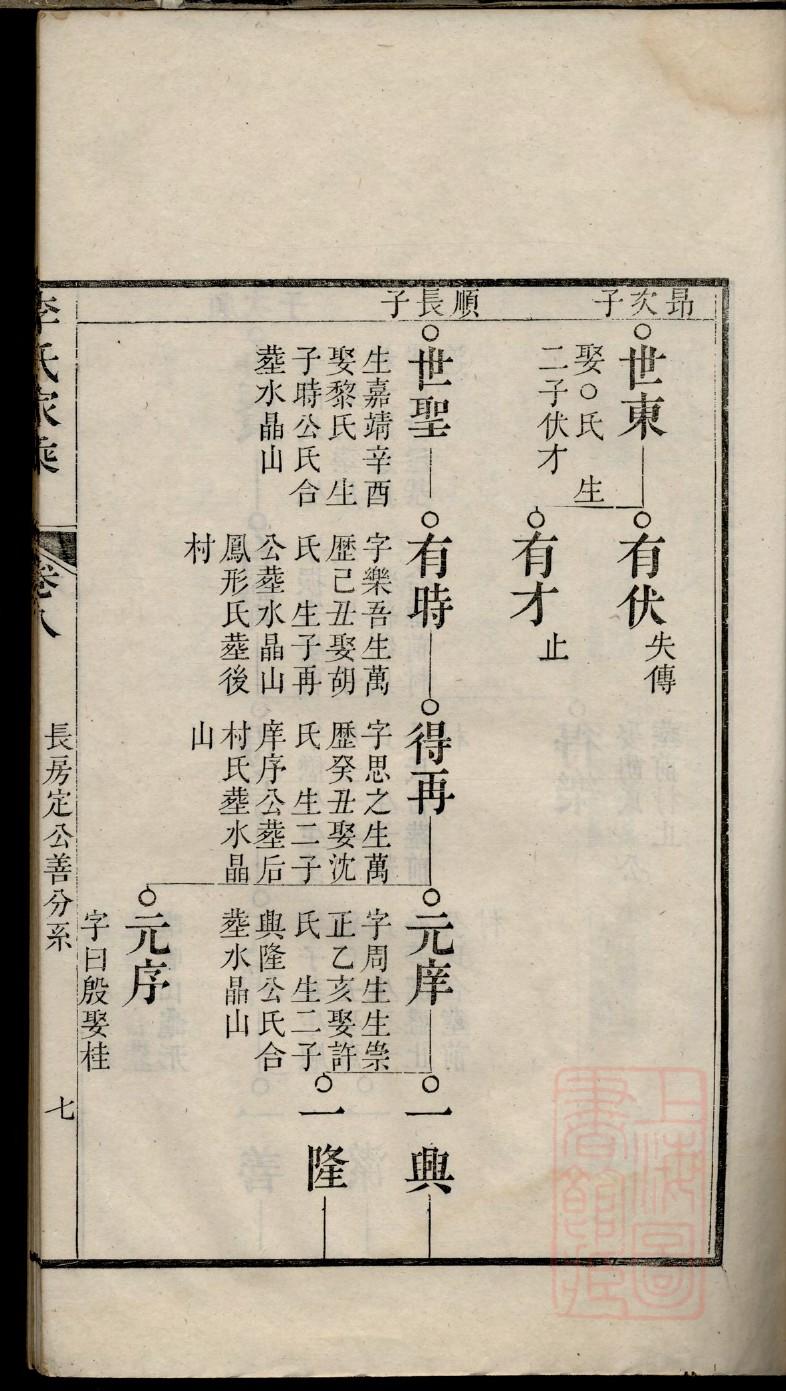 昂次子
世東
娶○氏 生
二子伏才
有伏
失傳
有才
止
順長子
世聖
生嘉靖辛酉
娶黎氏 生
子時公氏合
塟水晶山
有時
字樂吾生萬
歷己丑娶胡
氏 生子再
公塟水晶山
鳳形氏塟後
村
得再
字思之生萬
歷癸丑娶沈
氏 生二子
庠序公塟后
村氏塟水晶
山
元庠
字周生生崇
正乙亥娶許
氏 生二子
興隆公氏合
塟水晶山
一興
一隆
元序
字曰殷娶桂
李氏家乘
卷八
長房定公善分系
七
上海圖
書館藏